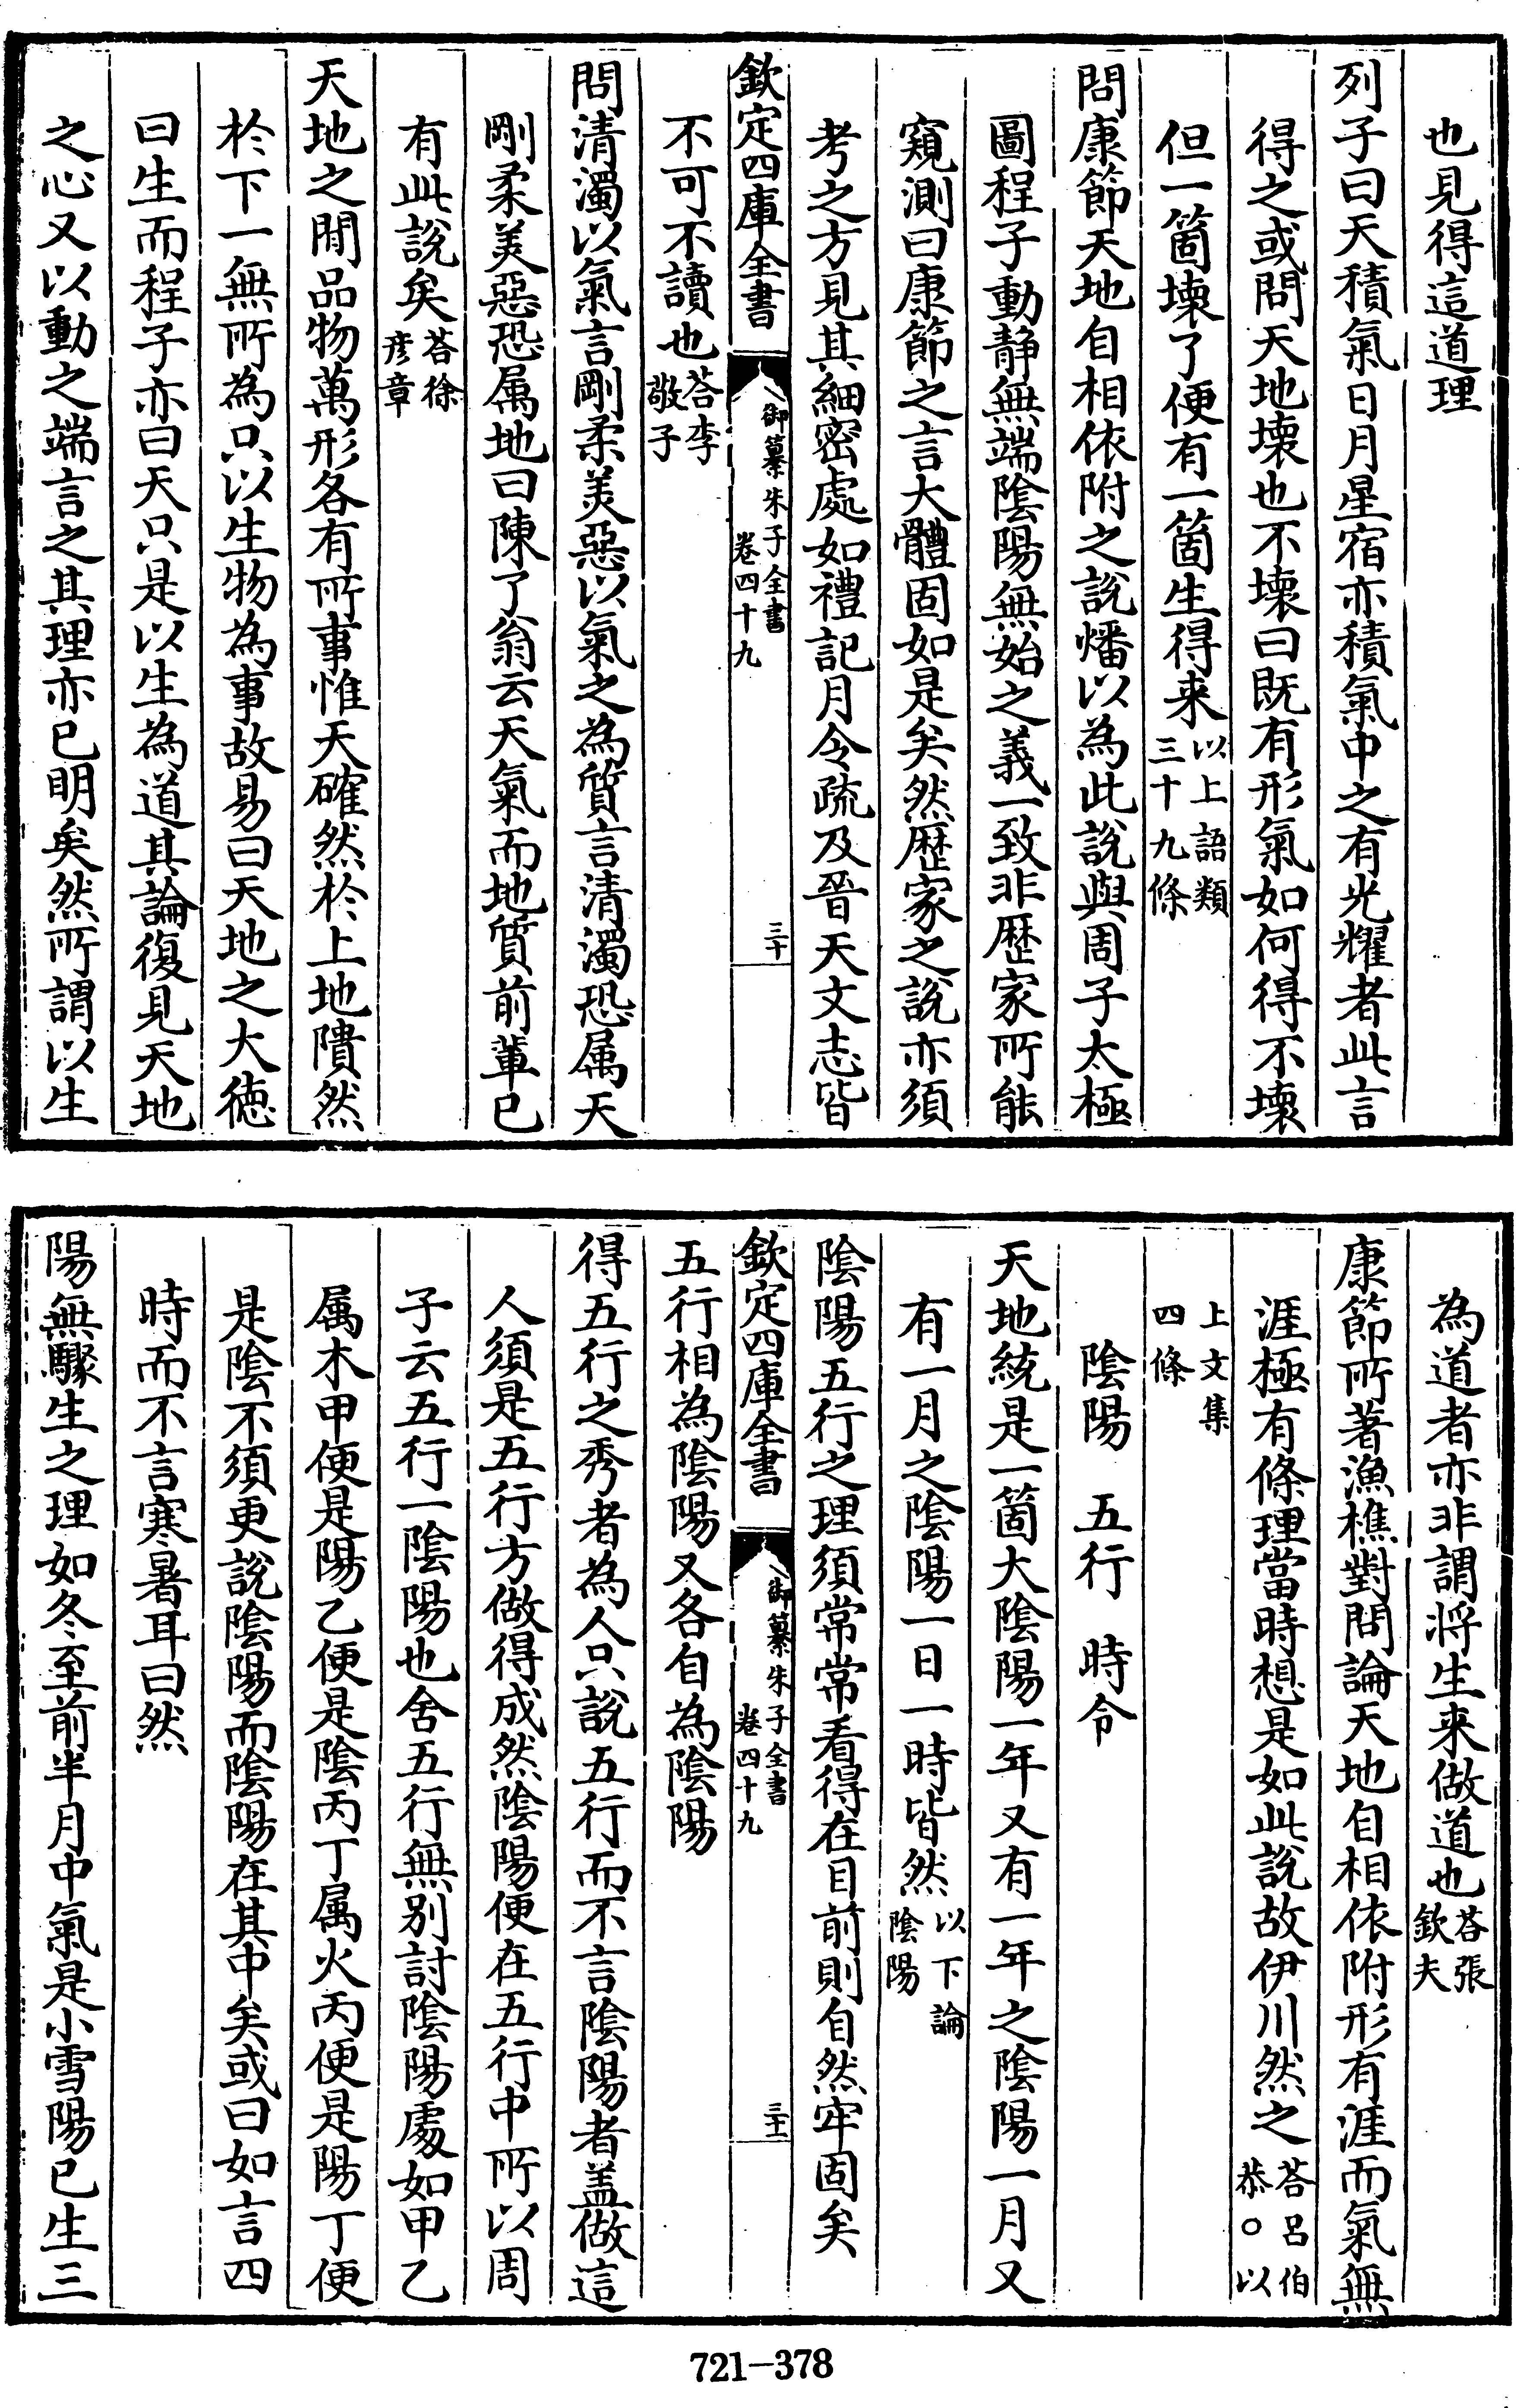 也見得這道理
列子曰天積氣日月星宿亦積氣中之有光耀者此言
得之或問天地壞也不壞曰既有形氣如何得不壞
但一箇壞了便有一箇生得来以上語類三十九條
問康節天地自相依附之說燔以為此說與周子太極
圖程子動静無端陰陽無始之義一致非歴家所能
窺測曰康節之言大體固如是矣然歴家之說亦須
考之方見其細密處如禮記月令疏及晉天文志皆
欽定四庫全書 御纂朱子全書卷四十九 三十
不可不讀也荅李敬子
問清濁以氣言剛柔美惡以氣之為質言清濁恐属天
剛柔美惡恐属地曰陳了翁云天氣而地質前軰已
有此說矣荅徐彦章
天地之閒品物萬形各有所事惟天確然於上地隤然
於下一無所為只以生物為事故易曰天地之大徳
曰生而程子亦曰天只是以生為道其論復見天地
之心又以動之端言之其理亦已明矣然所謂以生
為道者亦非謂将生来做道也荅張欽夫
康節所著漁樵對問論天地自相依附形有涯而氣無
涯極有條理當時想是如此說故伊川然之荅呂伯恭○以
上文集四條
陰陽 五行 時令
天地統是一箇大陰陽一年又有一年之陰陽一月又
有一月之陰陽一日一時皆然以下論陰陽
陰陽五行之理須常常看得在目前則自然牢固矣
欽定四庫全書 御纂朱子全書卷四十九 三十一
五行相為陰陽又各自為陰陽
得五行之秀者為人只說五行而不言陰陽者盖做這
人須是五行方做得成然陰陽便在五行中所以周
子云五行一陰陽也舍五行無别討陰陽處如甲乙
属木甲便是陽乙便是陰丙丁属火丙便是陽丁便
是陰不須更說陰陽而陰陽在其中矣或曰如言四
時而不言寒暑耳曰然
陽無驟生之理如冬至前半月中氣是小雪陽已生三
721-378